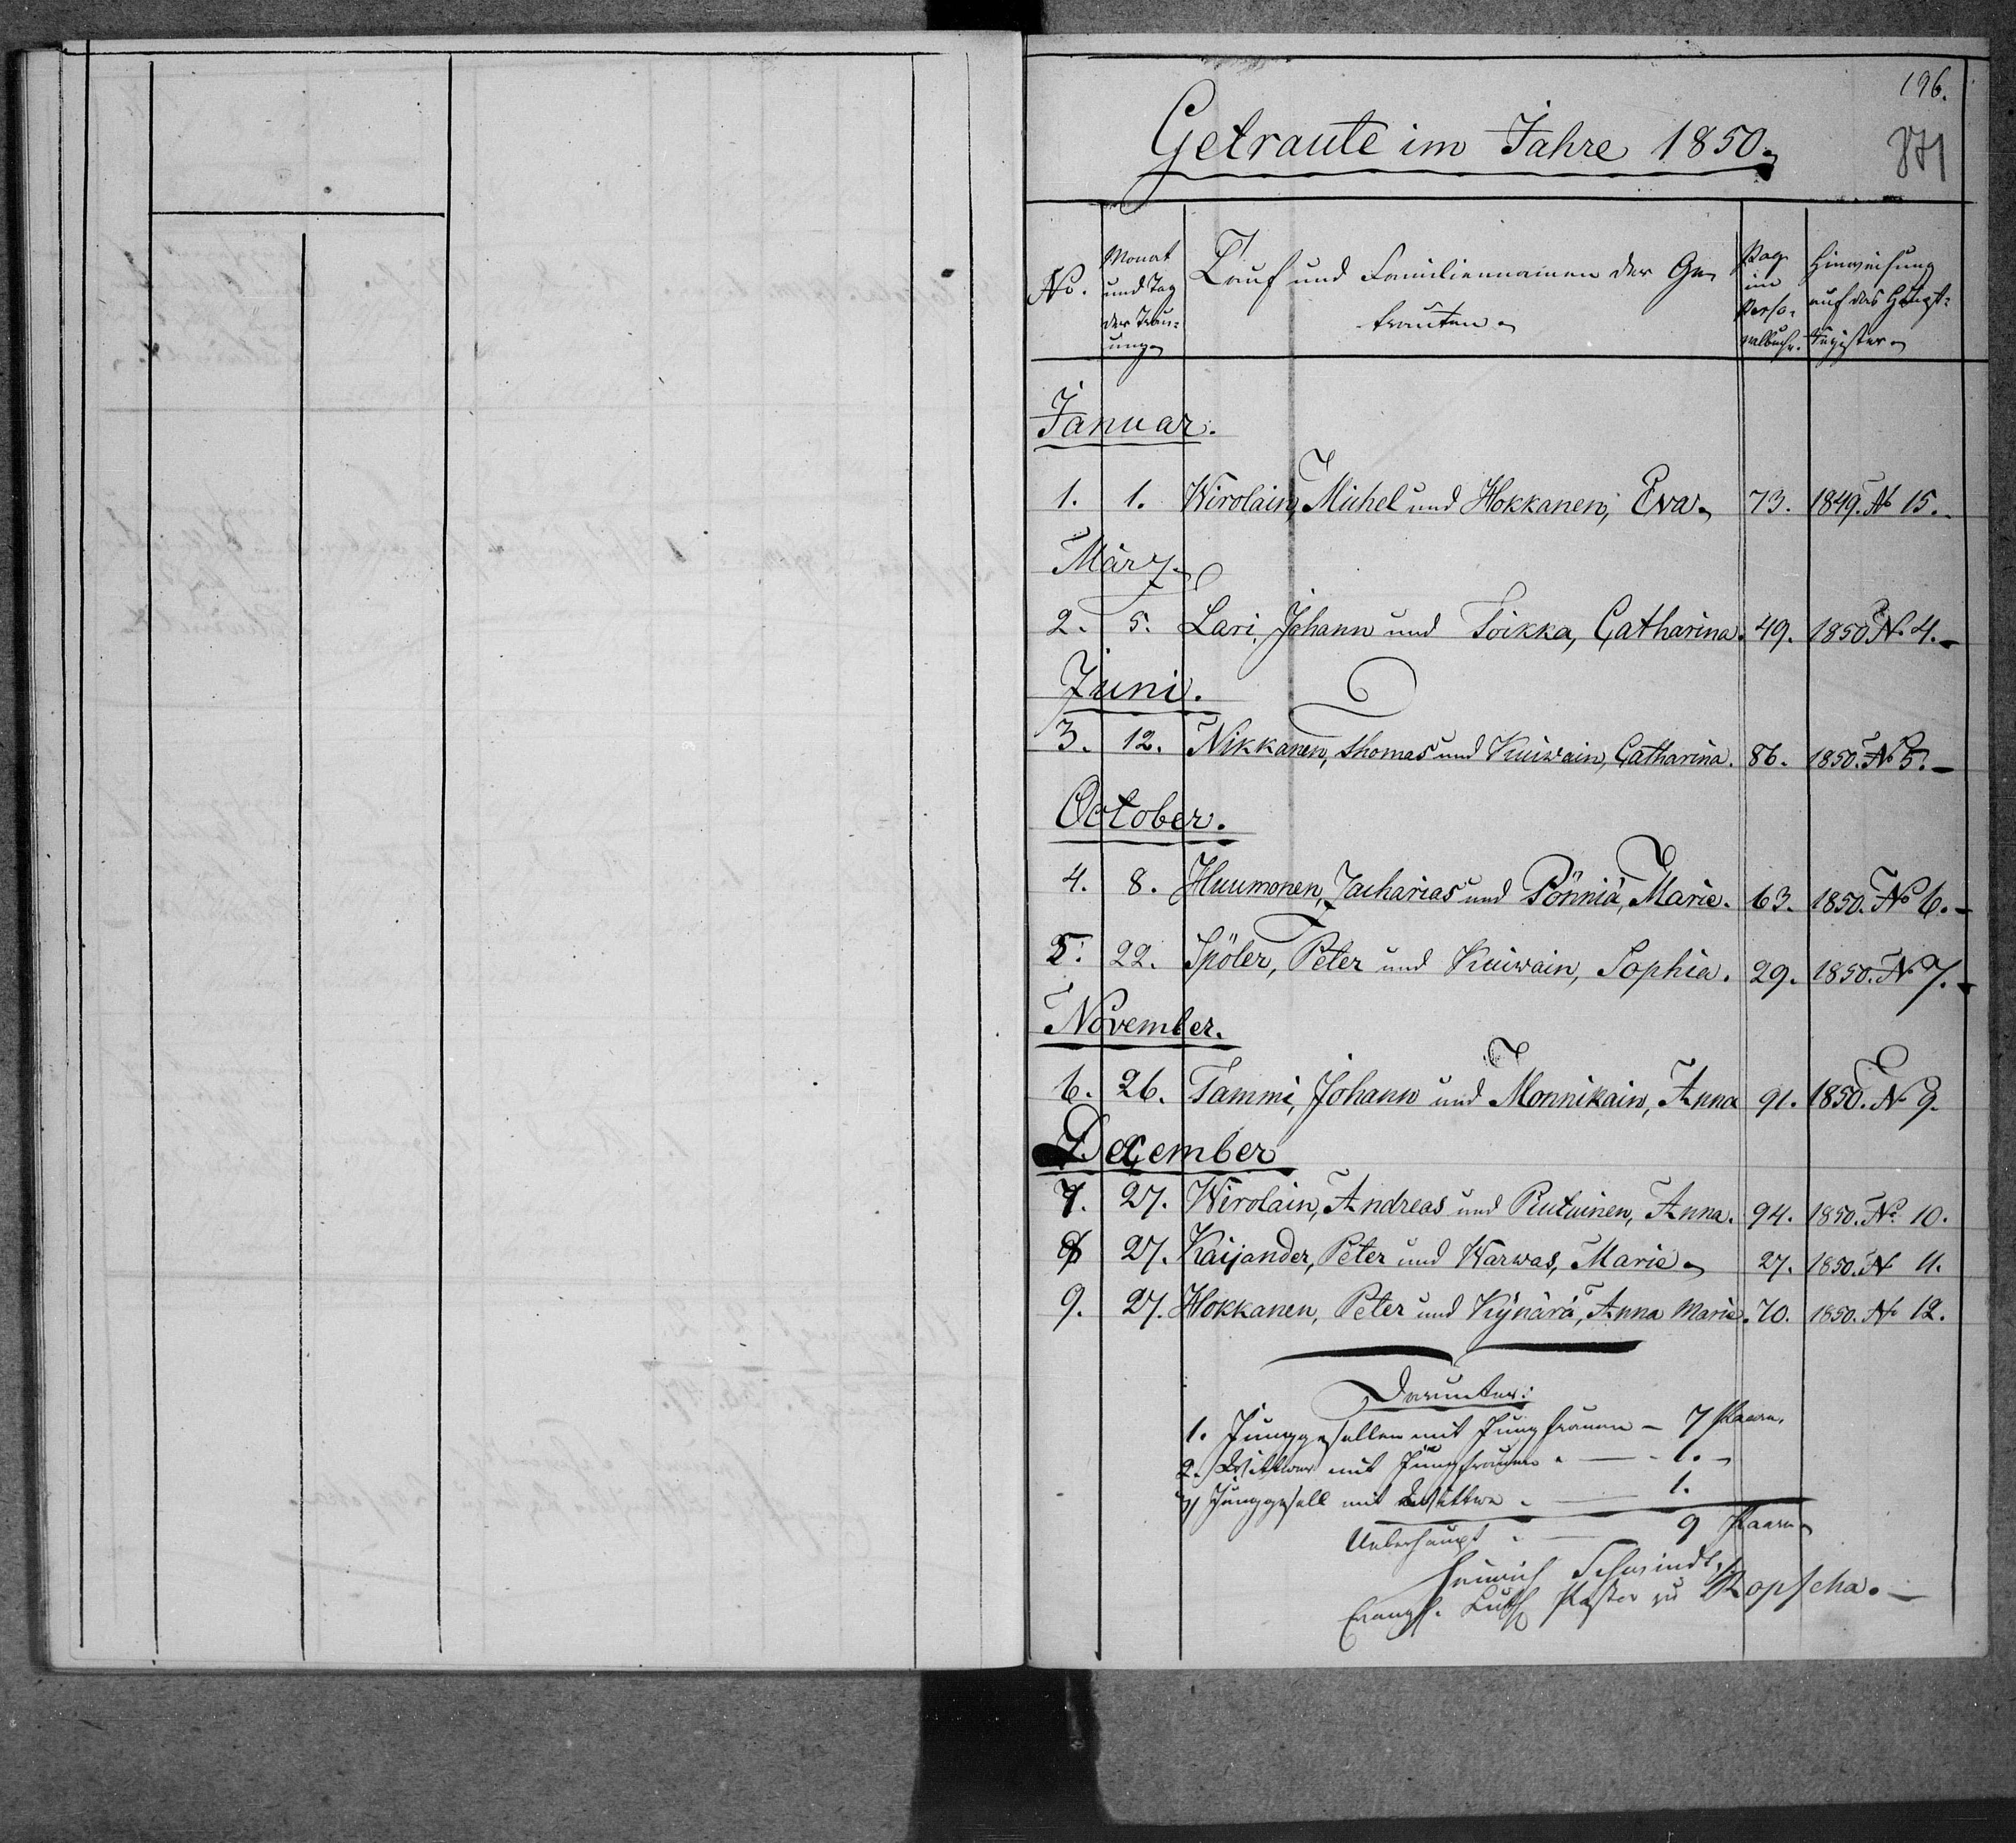 196.
871
Getraute im Jahre 1850.
No. Monat und Tag der Trauung. Tauf und Familiennamen der Getrauten. Pag. im Personalbuche. Hinweisung auf das Hauptregister.
Januar.
1. 1. Wirolain, Michel und Hokkanen, Eva. 73. 1849. No 15.
März.
2. 5. Lari, Johann und Toikka, Catharina. 49. 1850 No 4.
Juni.
3. 12. Nikkanen, Thomas und Kuiwain, Catharina. 86. 1850. No 5.
October.
4. 8. Huumonen, Zacharias und Pönniä, Marie. 63. 1850. No 6.
5. 22. Spöler, Peter und Kuiwain, Sophia. 29. 1850. No 7.
November.
6. 26. Tammi, Johann und Monnikain, Anna 91. 1850. No 9.
December
7. 27. Wirolain, Andreas und Anna. 94. 1850. No 10.
8 27. Kaijander, Peter und Warwas, Marie. 27. 1850. No 11.
9. 27. Hokkanen, Peter und Kynärä, Anna Marie. 70. 1850. No 12.
Darunter:
1. Junggesellen mit Jungfrauen – 7 Paare.
2. Wittwer mit Jungfrauen. – 1. –
3) Junggesell mit Wittwe. – 1.
Ueberhaupt. – 9 Paare.
Heinrich Schwindt,
Evangl. Luth. Pastor zu Ropscha. –